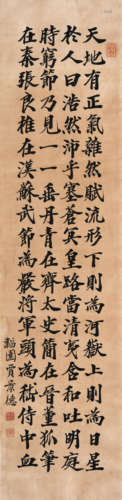 天地有正氣雜然賦流形下則為河嶽上則為日星
於人曰浩然沛乎塞蒼冥皇路當清夷含和吐明庭
時窮節乃見一一垂丹青在齊太史簡在晉董狐筆
在秦張良椎在漢蘇武節為嚴將軍頭為嵇侍中血
韜園賈景德